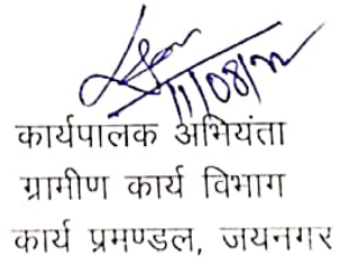 11/08/22
कार्यपालक अभियंता
ग्रामीण कार्य विभाग
कार्य प्रमण्डल, जयनगर